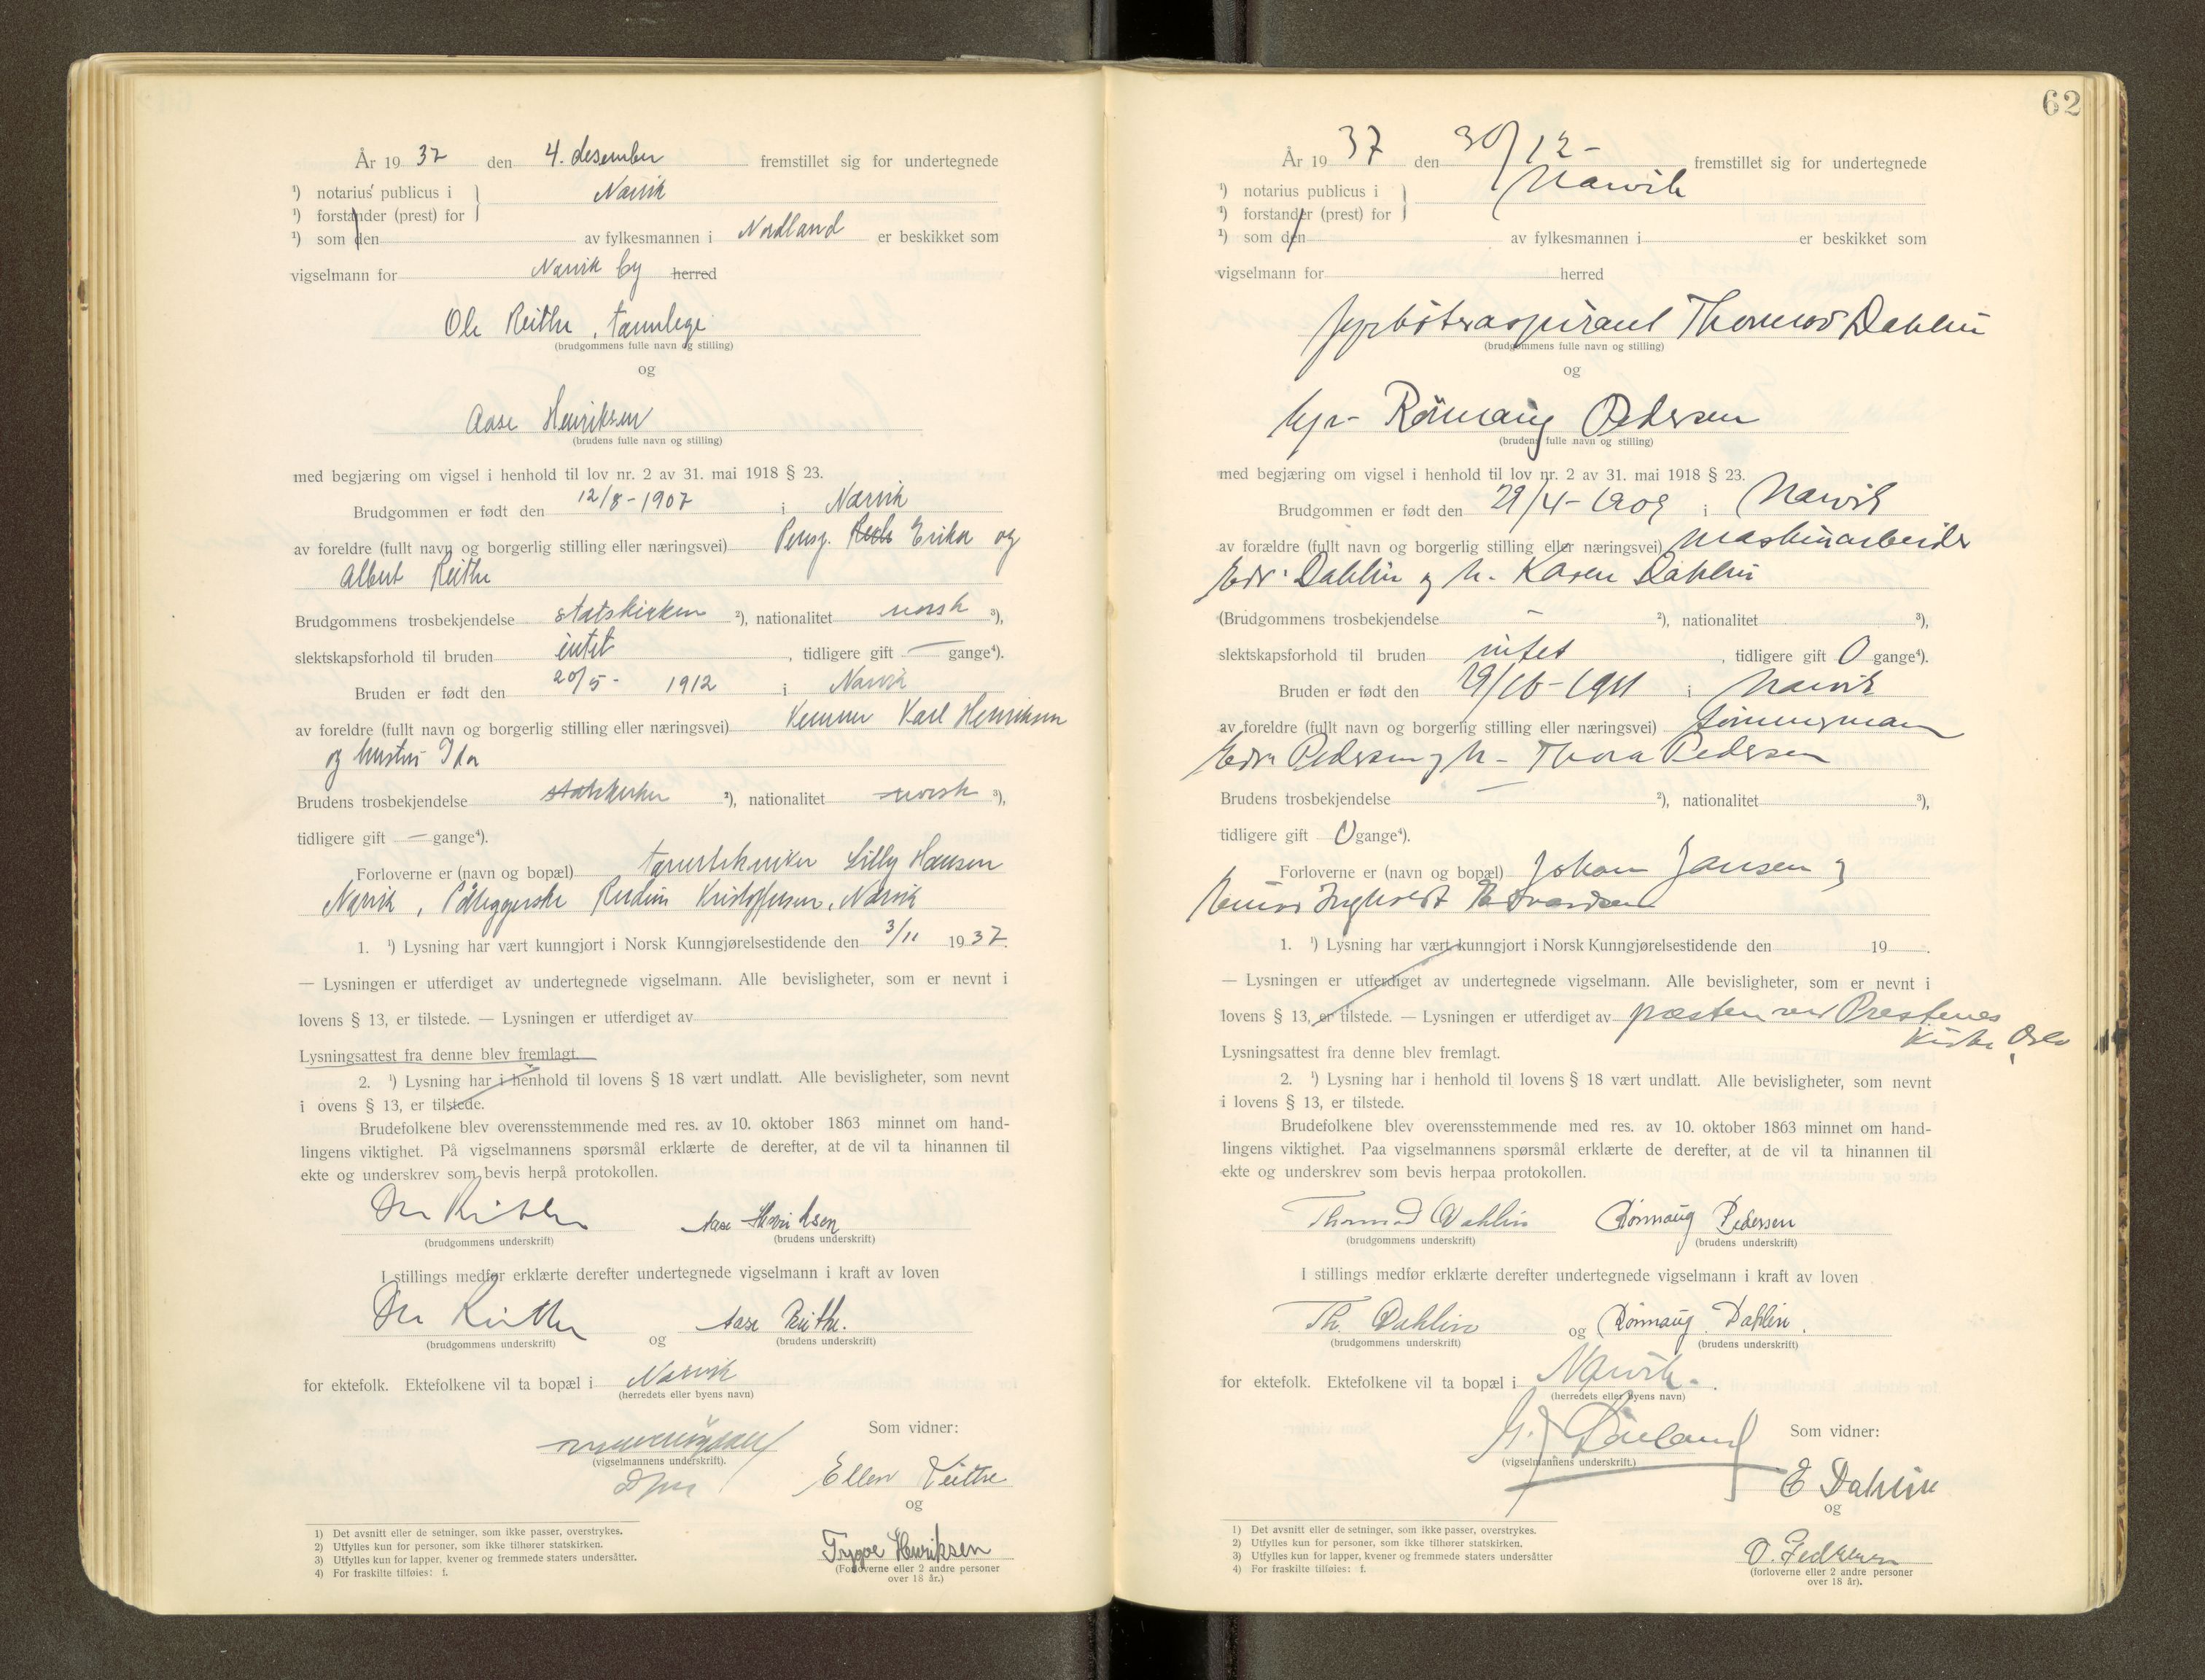 År 19 37 den 4. desember fremstillet sig for undertegnede
¹) notarius publicus i } Narvik
¹) forstander (prest) for
¹) som den av fylkesmannen i Nordland er beskikket som
vigselmann for Narvik by herred
Ole Reithe, tannlege
(brudgommens fulle navn og stilling)
og
Aase Henriksen
(brudens fulle navn og stilling)
med begjæring om vigsel i henhold til lov nr. 2 av 31. mai 1918 § 23.
Brudgommen er født den 12/8-1907 i Narvik
av foreldre (fullt navn og borgerlig stilling eller næringsvei) Erika og
Albert Reithe
Brudgommens trosbekjendelse statskirken ²), nationalitet norsk ³),
slektskapsforhold til bruden intet , tidligere gift — gange⁴).
Bruden er født den 20/5- 1912 i Narvik
av foreldre (fullt navn og borgerlig stilling eller næringsvei) Kemner Karl Henriksen
og hustru Ida
Brudens trosbekjendelse statskirken ²), nationalitet norsk ³),
tidligere gift — gange⁴).
Forloverne er (navn og bopæl) tanntekniker Lilly Hansen
Narvik, Påleggerske Kristoffersen, Narvik
1. ¹) Lysning har vært kunngjort i Norsk Kunngjørelsestidende den 3/11 1937.
— Lysningen er utferdiget av undertegnede vigselmann. Alle bevisligheter, som er nevnt i
lovens § 13, er tilstede. — Lysningen er utferdiget av
Lysningsattest fra denne blev fremlagt.
2. ¹) Lysning har i henhold til lovens § 18 vært undlatt. Alle bevisligheter, som nevnt
i ovens § 13, er tilstede.
Brudefolkene blev overensstemmende med res. av 10. oktober 1863 minnet om hand-
lingens viktighet. På vigselmannens spørsmål erklærte de derefter, at de vil ta hinannen til
ekte og underskrev som bevis herpå protokollen.
Ole Reithe Aase Henriksen
(brudgommens underskrift) (brudens underskrift)
I stillings medfør erklærte derefter undertegnede vigselmann i kraft av loven
Ole Reithe og Aase Reithe.
(brudgommens underskrift) (brudens underskrift)
for ektefolk. Ektefolkene vil ta bopæl i Narvik
(herredets eller byens navn)
Som vidner:
(vigselmannens underskrift).
Ellen Reithe
og
Trygve Henriksen
(Forloverne eller 2 andre personer
over 18 år.)
1) Det avsnitt eller de setninger, som ikke passer, overstrykes.
2) Utfylles kun for personer, som ikke tilhører statskirken.
3) Utfylles kun for lapper, kvener og fremmede staters undersåtter.
4) For fraskilte tilføies: f.
62
År 19 37 den 30/12- fremstillet sig for undertegnede
¹) notarius publicus i } Narvik
¹) forstander (prest) for
¹) som den av fylkesmannen i er beskikket som
vigselmann for herred
fyrbøteraspirant Thormod Dahlin
(brudgommens fulle navn og stilling)
og
Rønnaug Pedersen
(brudens fulle navn og stilling)
med begjæring om vigsel i henhold til lov nr. 2 av 31. mai 1918 § 23.
Brudgommen er født den 29/4-1909 i Narvik
av forældre (fullt navn og borgerlig stilling eller næringsvei) maskinarbeider
Edv. Dahlin og h. Karen Dahlin
(Brudgommens trosbekjendelse — ²), nationalitet ³),
slektskapsforhold til bruden intet , tidligere gift 0 gange⁴).
Bruden er født den 19/10-1911 i Narvik
av foreldre (fullt navn og borgerlig stilling eller næringsvei) tømmermann
Edv. Pedersen og h. Thora Pedersen
Brudens trosbekjendelse — ²), nationalitet ³),
tidligere gift 0 gange⁴).
Forloverne er (navn og bopæl) Johan Jansen og
1. ¹) Lysning har vært kunngjort i Norsk Kunngjørelsestidende den 19 .
— Lysningen er utferdiget av undertegnede vigselmann. Alle bevisligheter, som er nevnt i
lovens § 13, er tilstede. — Lysningen er utferdiget av presten ved Prestenes
Kirke, Oslo
Lysningsattest fra denne blev fremlagt.
2. ¹) Lysning har i henhold til lovens § 18 vært undlatt. Alle bevisligheter, som nevnt
i lovens § 13, er tilstede.
Brudefolkene blev overensstemmende med res. av 10. oktober 1863 minnet om hand-
lingens viktighet. Paa vigselmannens spørsmål erklærte de derefter, at de vil ta hinannen til
ekte og underskrev som bevis herpaa protokollen.
Thormod Dahlin Rønnaug Pedersen
(brudgommens underskrift) (brudens underskrift)
I stillings medfør erklærte derefter undertegnede vigselmann i kraft av loven
Th. Dahlin og Rønnaug Dahlin.
(brudgommens underskrift) (brudens underskrift)
for ektefolk. Ektefolkene vil ta bopæl i Narvik.
(herredets eller byens navn)
Som vidner:
(vigselmannens underskrift.)
E Dahlin
og
O. Pedersen
(forloverne eller 2 andre personer
over 18 år).
1) Det avsnitt eller de setninger, som ikke passer, overstrykes.
2) Utfylles kun for personer, som ikke tilhører statskirken.
3) Utfylles kun for lapper, kvener og fremmede staters undersåtter
4) For fraskilte tilføies: f.